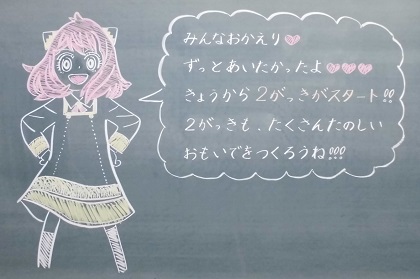 みんなおかえり♥
ずっとあいたかったよ♥♥♥
きょうから2がっきがスタート!!
2がっきも、たくさんたのしい
おもいでをつくろうね!!!